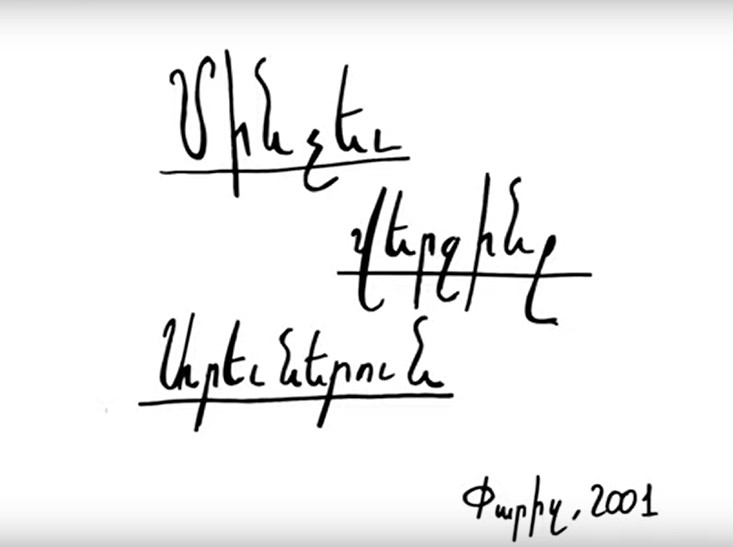 Մինչեւ
Վերջինը
Արեւներուն
Փարիզ, 2001